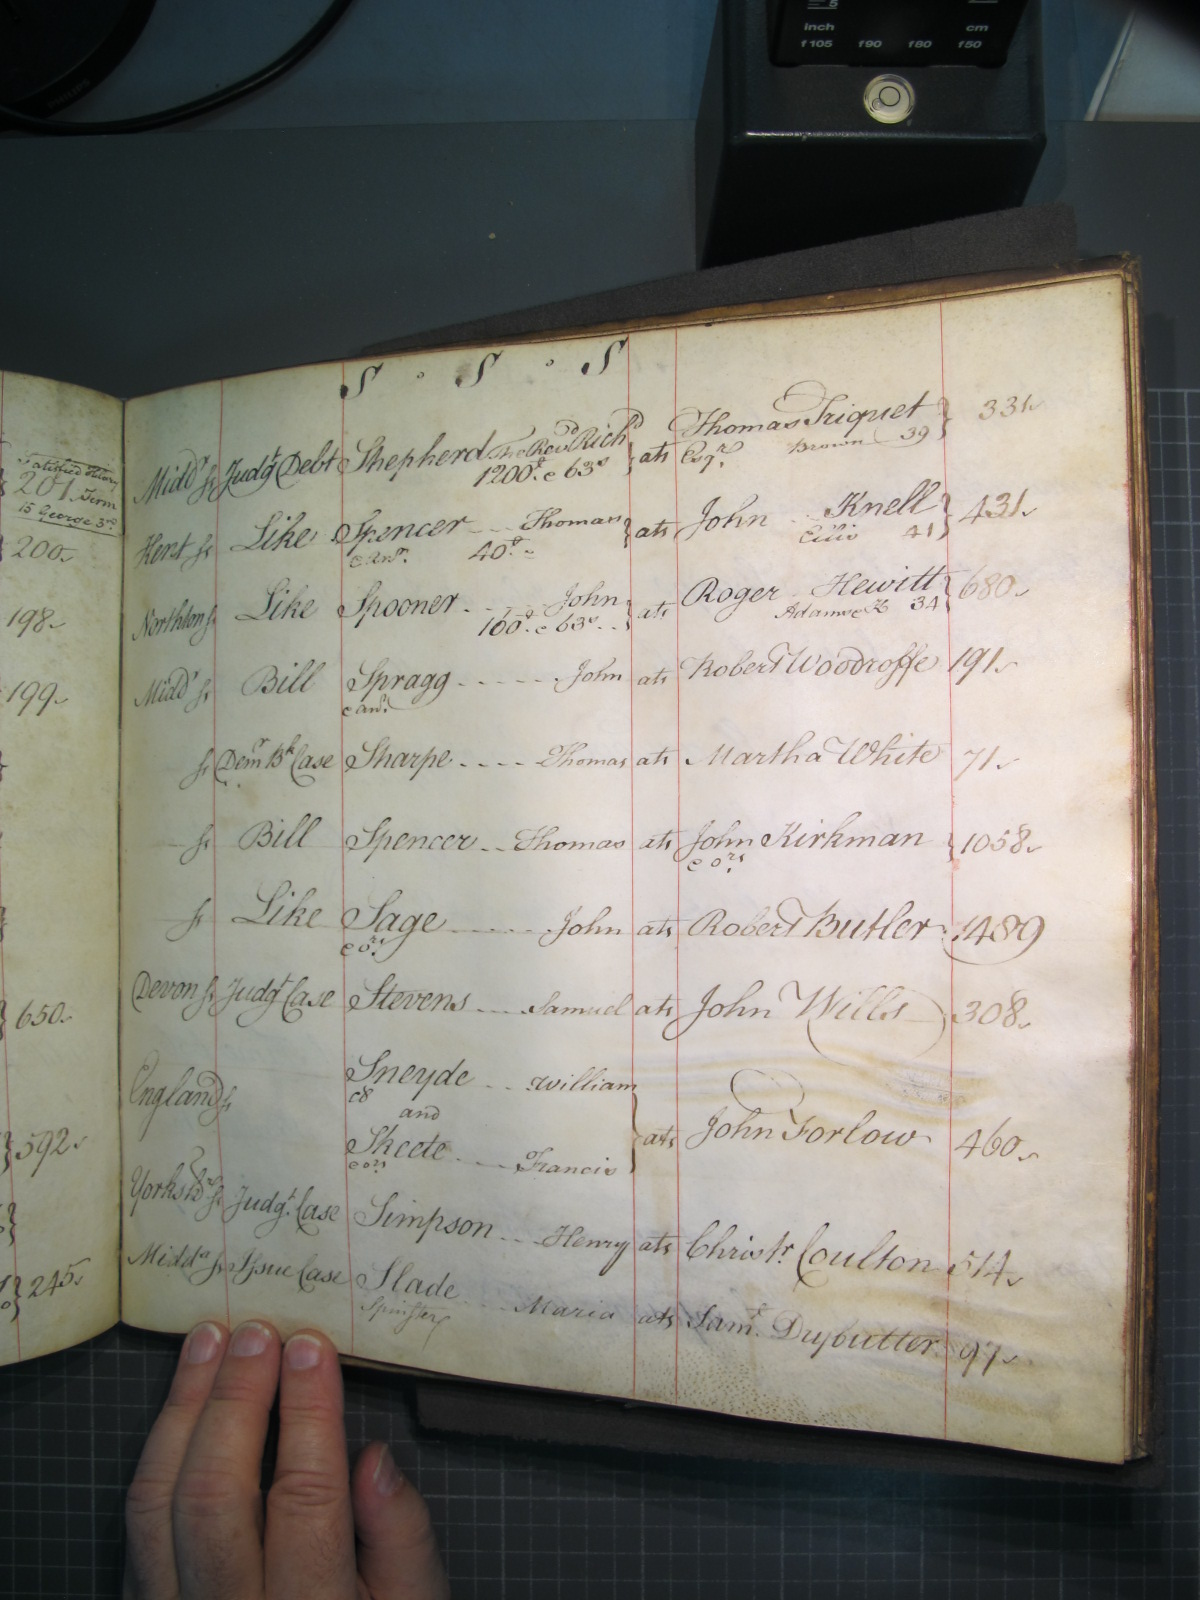 5
inch cm
f105 f90 f80 f50
PHILIPS
S . S . S
Satisfied
201 Term
15 George 3rd
200
198
199
650
592
245
Midds ss Judgt Debt Shepherd The Revd Richd ats Thomas Triquet 331
1200£ & 63s Esqr Brown 39
Kent ss Like Spencer Thomas ats John Knell 431
& anr 40£ 41
Northton ss Like Spooner John ats Roger Hewitt 680
100£ & 63s Adams & 34
Midds ss Bill Spragg John ats Robert Woodroffe 191
& anr
ss Demr Bk Case Sharpe Thomas ats Martha White 71
ss Bill Spencer Thomas ats John Kirkman 1058
& ors
ss Like Sage John ats Robert Butler 1489
& ors
Devon ss Judgt Case Stevens Samuel ats John Wills 308
England ss Sneyde William
and ats John Forlow 460
Skeete Francis
& ors
Yorksh ss Judgt Case Simpson Henry ats Christr Coulton 514
Middx ss Issue Case Slade Maria ats Saml Duybutter 97
Spinster